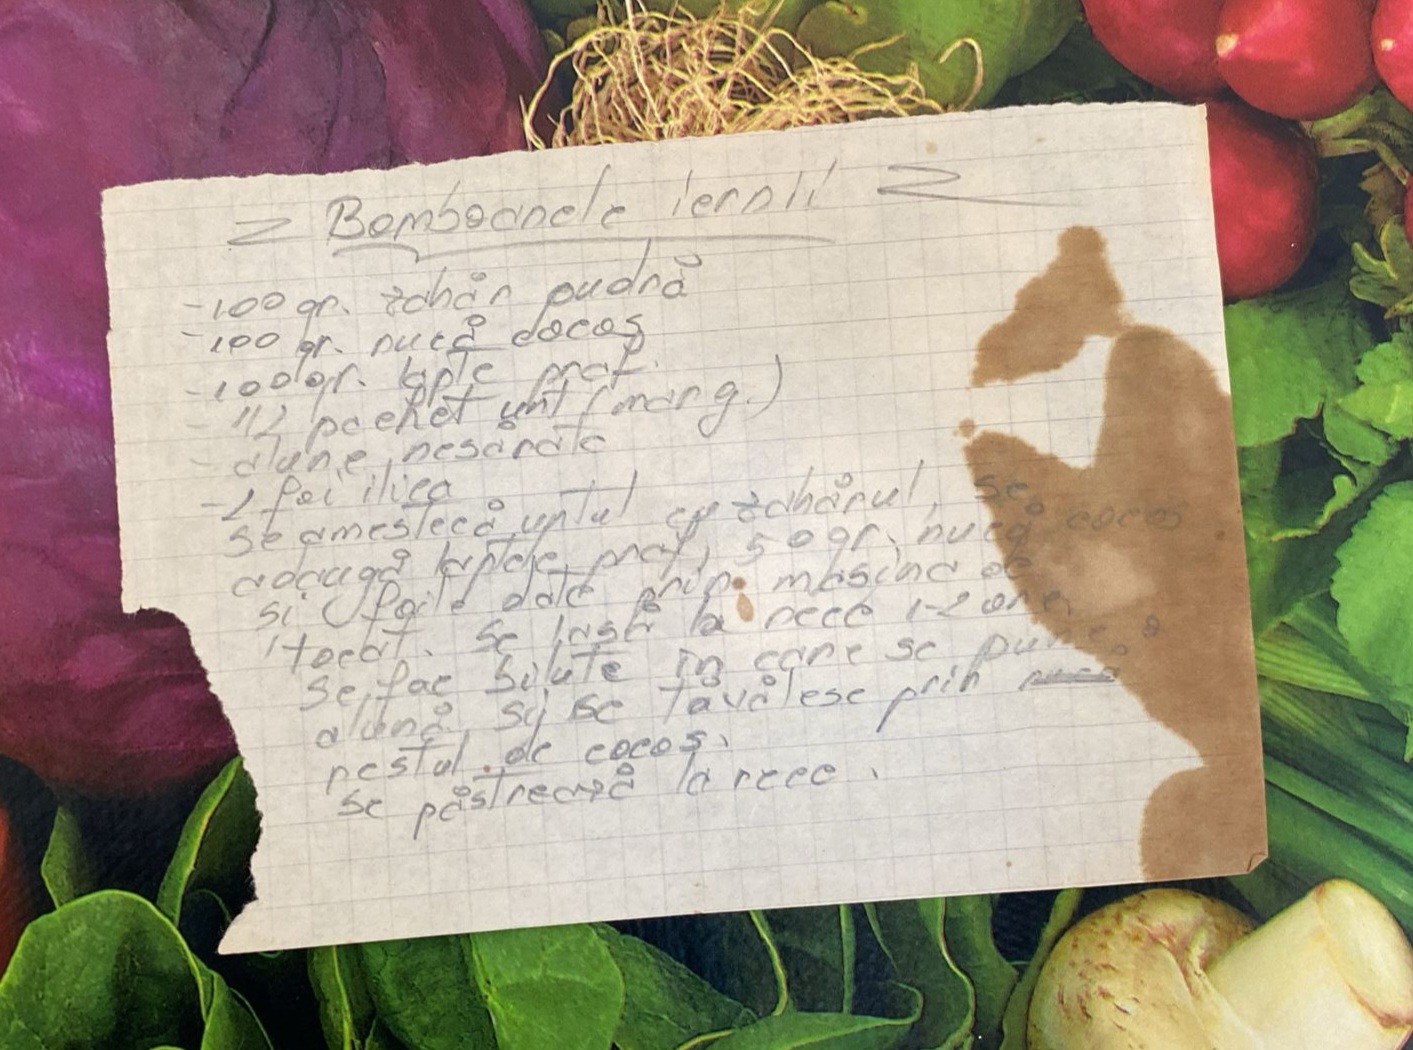 = Bomboanele iernii =
-100 gr. zahăr pudră
-100 gr. nucă cocos
-100 gr. lapte praf.
- 1/2 pachet unt (marg.)
- alune nesarate
-2 foi ilica
Se amestecă untul cu zahărul, se
adaugă laptele praf, 50 gr. nucă cocos
si foile date prin masina de
tocat. Se lasă la rece 1-2 ore.
Se fac biluțe in care se pune o
alună și se tavălesc prin nucă
restul de cocos.
Se păstrează la rece.